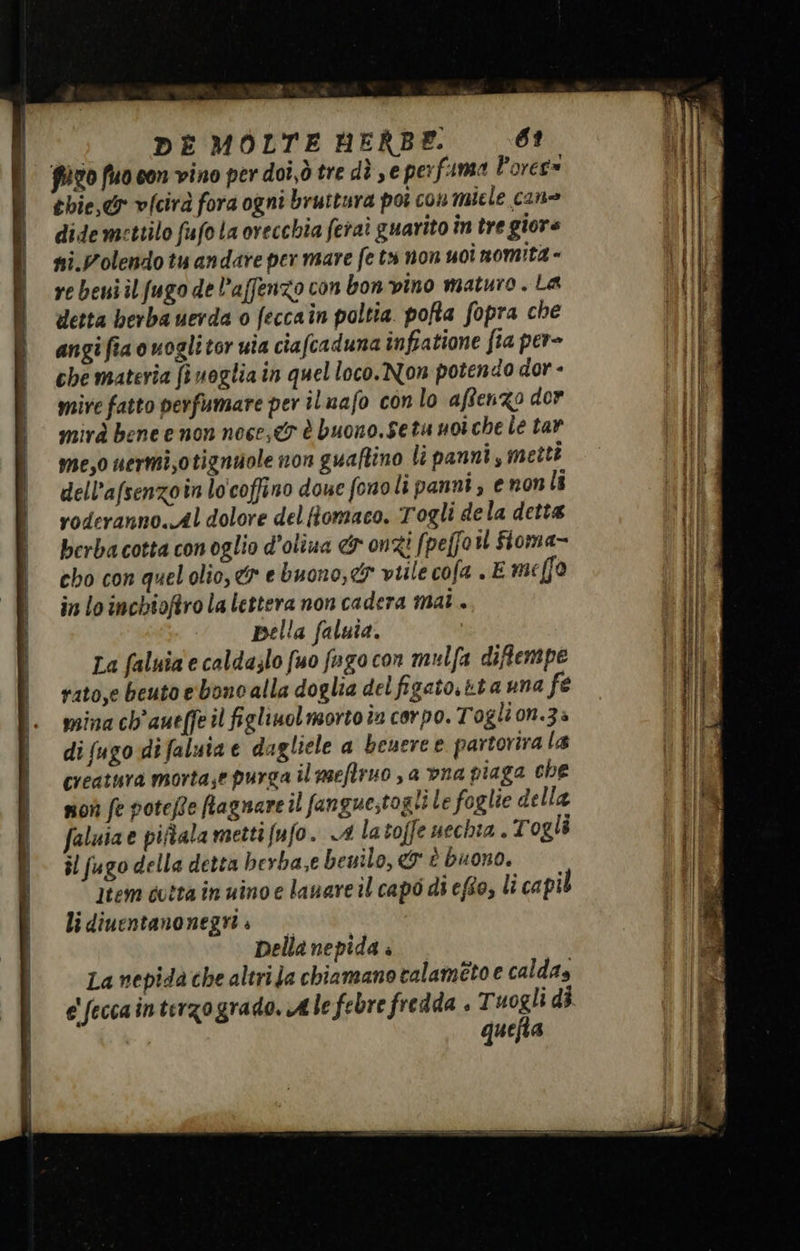 DE MOLTE HERBE. 61
ſugo ſuo con vino per doi,ò tre dì , e perfuma l'orec=
chie,& vſcirà fora ogni bruttura poi con miele can=
dide mettilo ſuſo la orecchia ſerai guarito in tre gior=
ni.Volendo tu andare per mare ſe tu non uoi uomita-
re beui il ſugo de l'aſſenzo con bon vino maturo . La
detta herba uerda o ſecca in poltia poſta ſopra che
angi ſia o uoglitor uia ciaſcaduna infiatione ſia per=
che materia ſi uoglia in quel loco.Non potendo dor-
mire fatto perfumare per il naſo con lo aſſenzo dor
mirà bene e non noce,& è buono.Se tu uoi che le tar
me,o uermi,o tignuole non guaſtino li panni , metti
dell'aſsenzo in lo coffino doue ſono li panni , e non li
roderanno.Al dolore del ſtomaco. Togli de la detta
herba cotta con oglio d'oliua & onzi ſpeſſo il ſtoma-
cho con quel olio,& e buono,& vtile coſa . E meſſo
in lo inchioſtro la lettera non cadera mai .
Della ſaluia.
La ſaluia e calda,lo ſuo ſugo con mulſa diſtempe
rato,e beuto e bono alla doglia del figato, & a una fe
mina ch'aueſſe il figliuol morto in corpo. Togli on.3.
di ſugo di ſaluia e dagliele a beuere e partorira la
creatura morta,e purga il meſtruo , a vna piaga che
non ſe poteſſe ſtagnare il ſangue,togli le foglie della
ſaluia e piſtala metti ſuſo. A la toſſe uechia . Togli
il ſugo della detta herba,e beuilo, & è buono.
Item cotta in uino e lauare il capo di eſſo, li capil
li diuentano negri .
Della nepida .
La nepida che altri la chiamano calamẽto e calda,
e' ſecca in terzo grado. A le febre fredda . Tuogli di
queſta